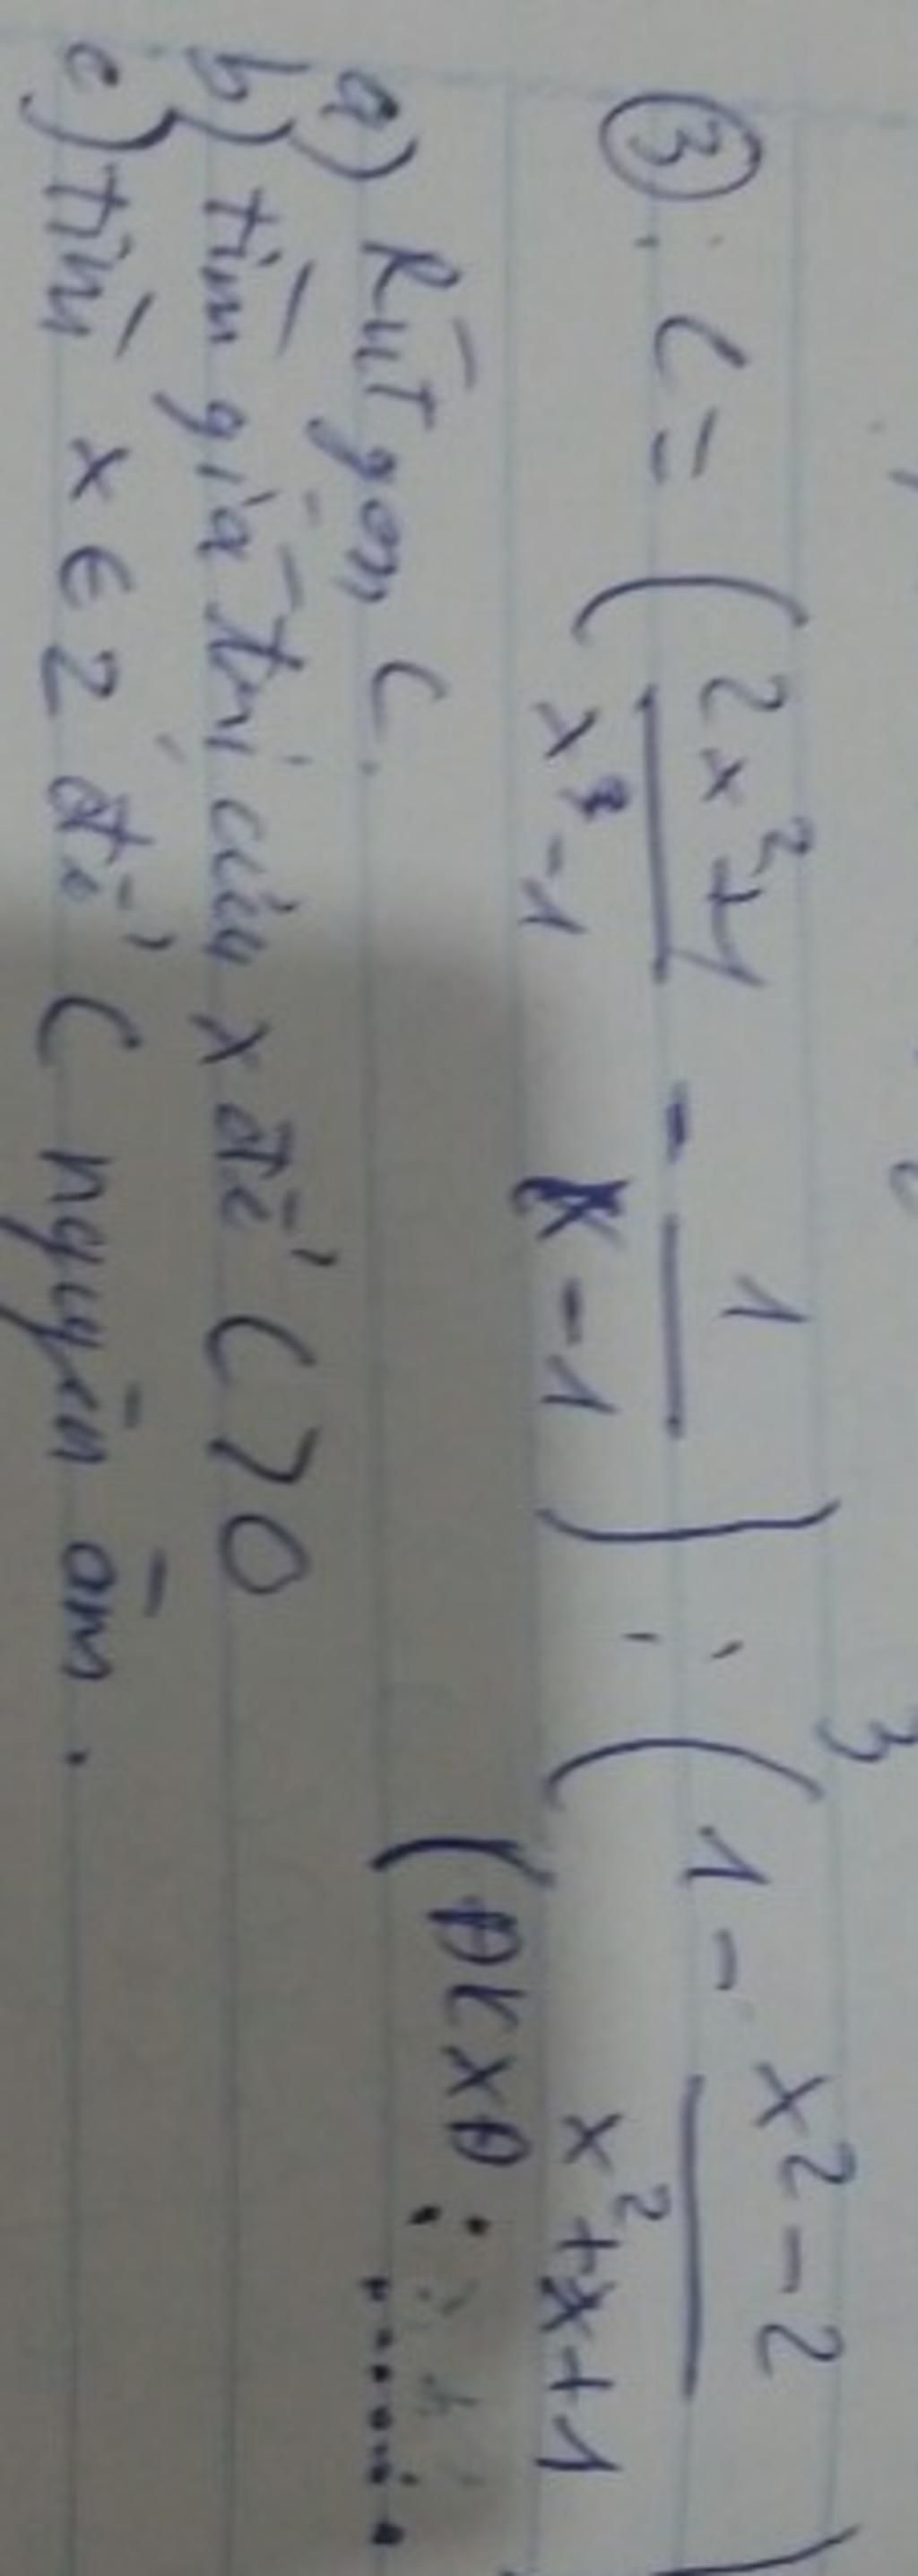 ③: C = ( (2x²+1)/(x³-1) - 1/(x-1) ) : ( 1 - (x²-2)/(x²+x+1) )
(ĐKXĐ: ......
a) Rút gọn C.
b) tìm giá trị của x để C>0
c) tìm x ∈ Z để C nguyên âm.